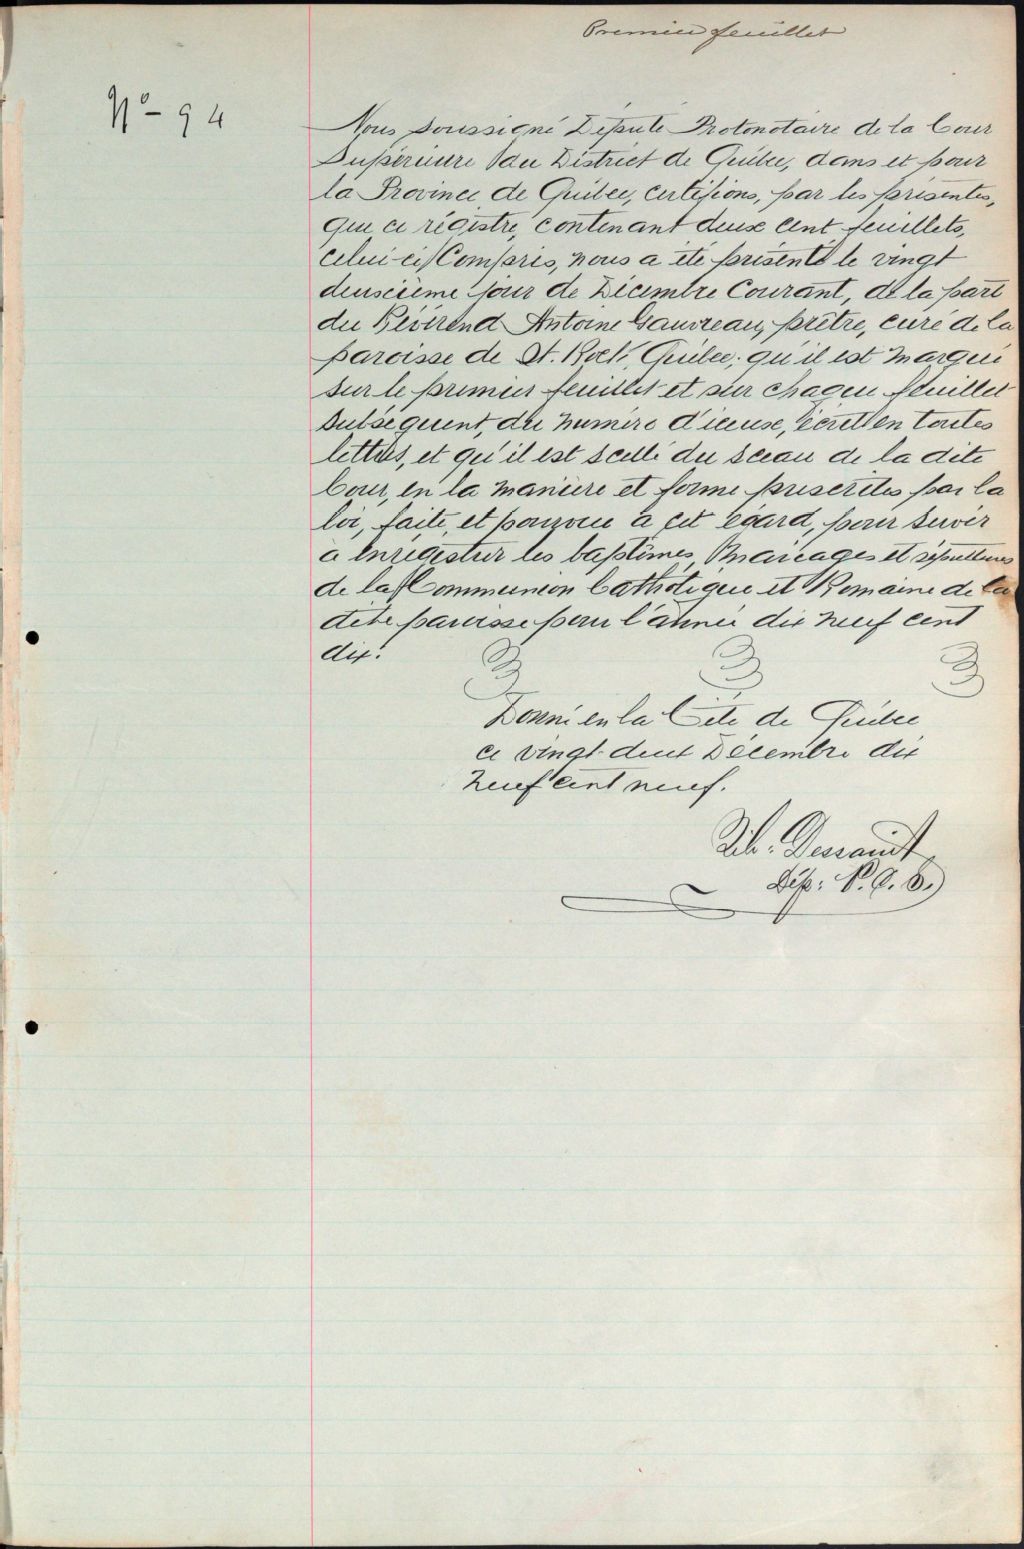 Premier feuillet
No - 94
Nous soussigné Député Protonotaire de la Cour
Supérieure du District de Québec, dans et pour
la Province de Québec, certifions, par les présentes,
que ce régistre, contenant deux cent feuillets,
celui-ci compris, nous a été présenté le vingt
deuxième jour de Décembre Courant, de la part
du Révérend Antoine Gauvreau, prêtre, curé de la
paroisse de St. Roch, Québec; qu'il est marqué
sur le premier feuillet et sur chaque feuillet
subséquent, du numéro d'iceux, écrit en toutes
lettres, et qu'il est scellé du sceau de la dite
Cour, en la manière et forme prescrites par la
loi, faite et pourvue à cet égard, pour servir
à enregistrer les baptêmes, Mariages et sépultures
de la Communion Catholique et Romaine de la
dite paroisse pour l'année dix neuf cent
dix.
Donné en la Cité de Québec
ce vingt-deux Décembre dix
neuf cent neuf.
Dép: P.C.S.